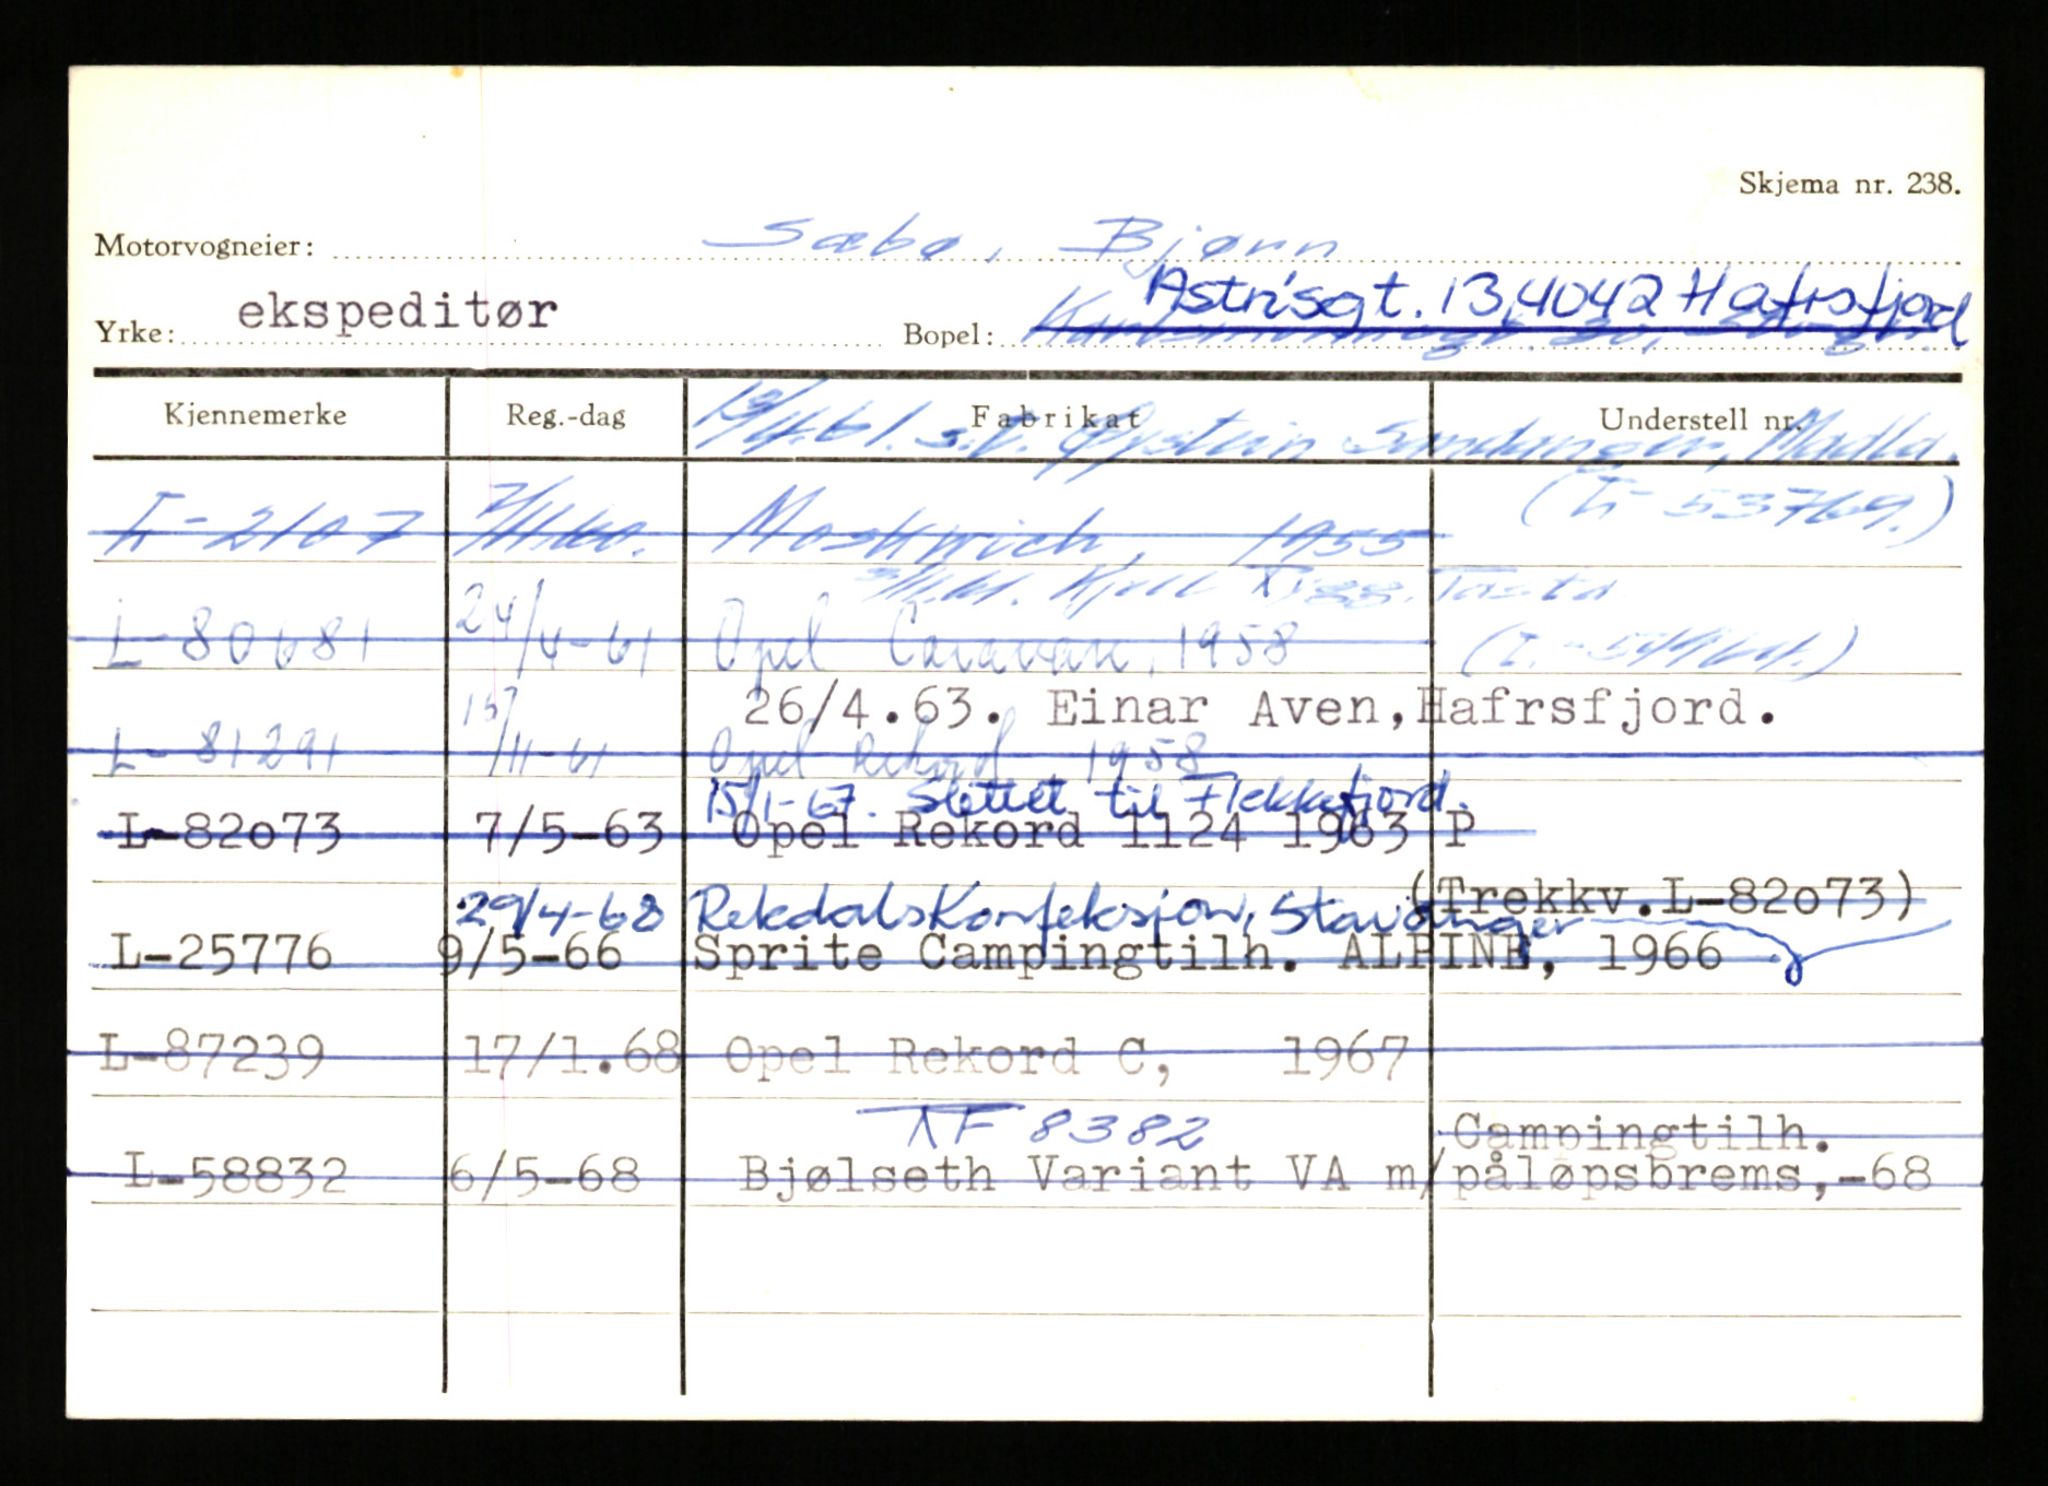 Skjema nr. 238.
Motorvogneier: Sæbø, Bjørn
Astrisgt. 13, 4042 Hafrsfjord
Yrke: ekspeditør Bopel:
Kjennemerke Reg.-dag Fabrikat Understell nr.
19/4.61. s.t. Øystein Sandanger, Madla.
(L-53769.)
L-2107 7/11.60. Moskwich, 1955
Kjell Tigg, Tasta
L-80681 24/4-61 Opel Caravan, 1958
26/4.63. Einar Aven, Hafrsfjord.
L-81291 15/11-61 Opel Rekord 1958
15/1-67. Slettet til Flekkefjord.
L-82o73 7/5-63 Opel Rekord 1124 1963 P
(Trekkv.L-82o73)
29/4-68 Rekdals Konfeksjon, Stavanger
L-25776 9/5-66 Sprite Campingtilh. ALPINE, 1966
L-87239 17/1.68 Opel Rekord C, 1967
NF 8382 Campingtilh.
L-58832 6/5-68 Bjølseth Variant VA m/påløpsbrems,-68